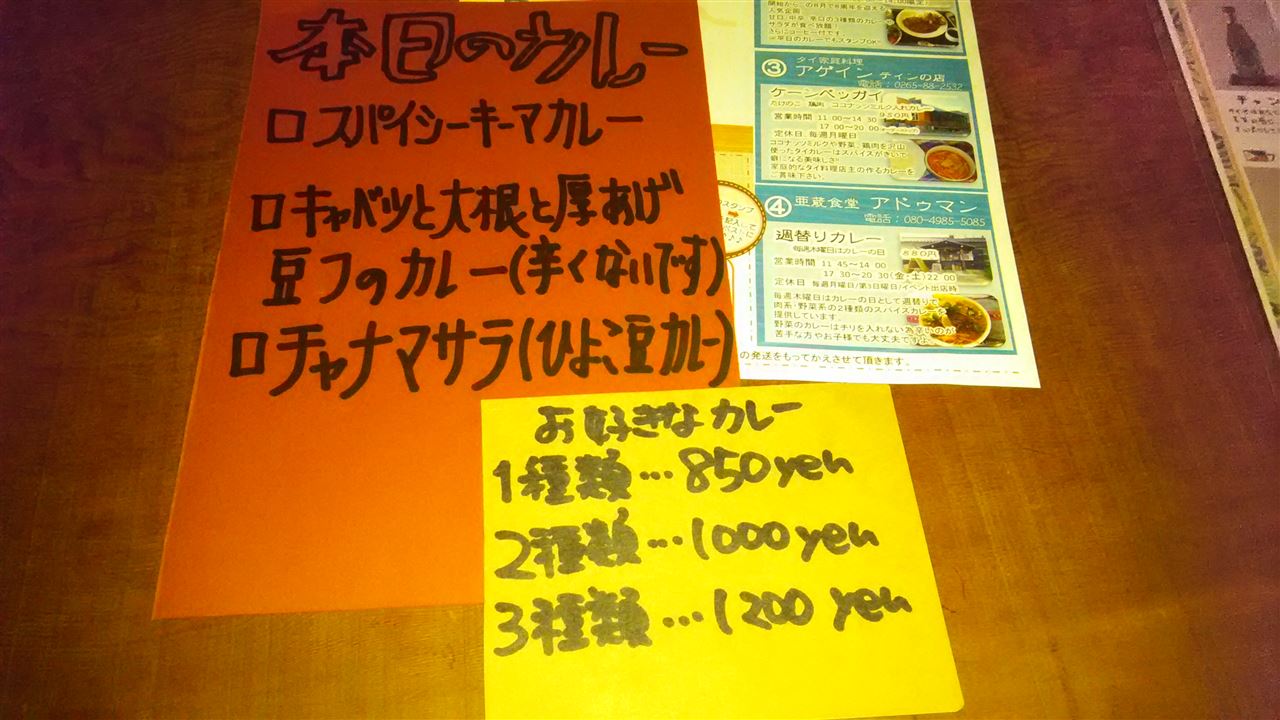 本日のカレー
□スパイシーキーマカレー
□キャベツと大根と厚あげ
豆フのカレー(辛くないです)
□チャナマサラ(ひよこ豆カレー)
お好きなカレー
1種類…850yen
2種類…1000yen
3種類…1200yen
人気企画
甘口、中辛、辛口の3種類のカレー
サラダが食べ放題!
さらにコーヒー付です
③ タイ家庭料理
アゲイン ティンの店
電話:0265-88-2532
ケーンペッガイ
たけのこ 鶏肉 ココナッツミルク入れカレー
950円
営業時間 11 00〜14 30
17 00〜20 00 オーダーストップ
定休日 毎週月曜日
ココナッツミルクや野菜、鶏肉を沢山
使ったタイカレーはスパイスがきいて
癖になる美味しさ!!
家庭的なタイ料理店主の作るカレーを
ご賞味下さい。
④ 亜蔵食堂 アドゥマン
電話:080-4985-5085
週替りカレー
毎週木曜日はカレーの日
880円
営業時間 11 45〜14 00
17 30〜20 30(金・土)22 00
定休日 毎週月曜日/第3日曜日/イベント出店時
毎週木曜日はカレーの日として週替りで
肉系・野菜系の2種類のスパイスカレーを
提供しています。
野菜のカレーはチリを入れない為辛いのが
苦手な方やお子様でも大丈夫ですよ。
の発送をもってかえさせて頂きます。